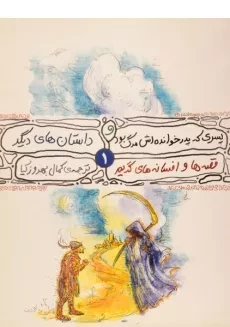 پسری که پدرخوانده‌اش مرگ بود و داستان‌های دیگر
قصه‌ها و افسانه‌های گریم ۱ ترجمه‌ی کمال بهروزکیا